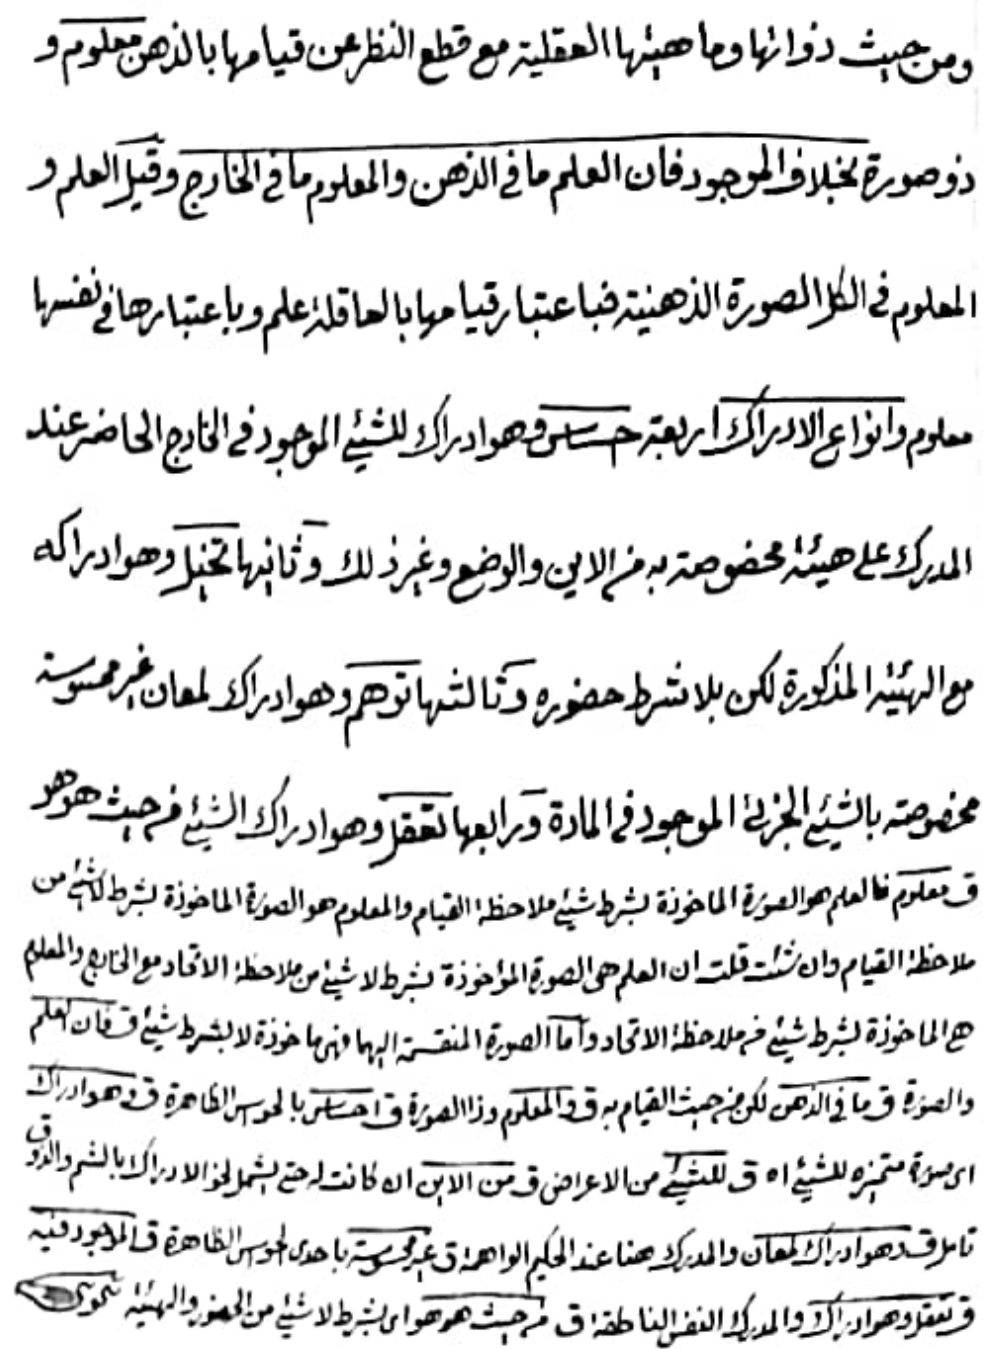 ومن حيث ذواتها وماهيتها العقلية مع قطع النظر عن قيامها بالذهن معلوم و
ذو صورة بخلاف الموجود فان العلم ما فى الذهن والمعلوم ما فى الخارج وقيل العلم و
المعلوم فى الكل الصورة الذهنية فباعتبار قيامها بالعاقلة علم وباعتبارها فى نفسها
معلوم وانواع الادراك اربعة حساس وهو ادراك للشيئ الموجود فى الخارج الحاضر عند
المدرك على هيئة مخصوصة به من الاين والوضع وغير ذلك وثانيها تخيل وهو ادراكه
مع الهيئة المذكورة لكن بلا شرط حضوره وثالثها توهم وهو ادراك لمعان غير محسوسة
مخصوصة بالشيئ الجزئى الموجود فى المادة ورابعها تعقل وهو ادراك الشيئ من حيث هو هو
ق معلوم فالعلم هو الصورة الماخوذة بشرط شيئ ملاحظة القيام والمعلوم هو الصورة الماخوذة بشرط لا شيئ من
ملاحظة القيام وان شئت قلت ان العلم هى الصورة المؤخوذة بشرط لا شيئ من ملاحظة الاتحاد مع الخارج والمعلوم
هى الماخوذة بشرط شيئ من ملاحظة الاتحاد واما الصورة المنقسمة اليهما فهى ماخوذة لا بشرط شيئ ق فان العلم
والصورة ق ما فى الذهن لكن من حيث القيام به ق والمعلوم وذا الصورة ق احساس بالحواس الظاهرة ق وهو ادراك
اى صورة متميزه للشيئ اه ق للشيئ من الاعراض ق من الاين ان كانت له حتى يشمل نحو الادراك بالشم والذوق
تامل ق وهو ادراك لمعان والمدرك هنا عند الحكيم الواهمة ق غير محسوسة باحدى الحواس الظاهرة ق الموجود فيه
ق تعقل وهو ادراك والمدرك النفس الناطقة ق من حيث هو هو اى بشرط لا شيئ من الحضور والهيئة